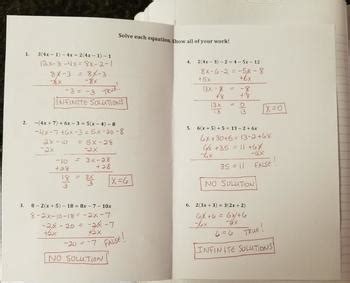 Solve each equation. Show all of your work!
1. 3(4x – 1) – 4x = 2(4x – 1) – 1
12x - 3 - 4x = 8x - 2 - 1
8x - 3 = 8x - 3
-8x -8x
-3 = -3 True!
INFINITE SOLUTIONS
2. –(4x + 7) + 6x – 3 = 5(x – 4) – 8
-4x - 7 + 6x - 3 = 5x - 20 - 8
2x - 10 = 5x - 28
-2x -2x
-10 = 3x - 28
+28 +28
18 = 3x
3 3
x = 6
3. 8 – 2(x + 5) – 18 = 8x – 7 – 10x
8 - 2x - 10 - 18 = -2x - 7
-2x - 20 = -2x - 7
+2x +2x
-20 = -7 False!
NO SOLUTION
4. 2(4x – 3) – 2 = 4 – 5x – 12
8x - 6 - 2 = -5x - 8
+5x +5x
13x - 8 = -8
+8 +8
13x = 0
13 13
x = 0
5. 6(x + 5) + 5 = 13 – 2 + 6x
6x + 30 + 5 = 13 - 2 + 6x
6x + 35 = 11 + 6x
-6x -6x
35 = 11 False!
NO SOLUTION
6. 2(3x + 3) = 3(2x + 2)
6x + 6 = 6x + 6
-6x -6x
6 = 6 True!
INFINITE SOLUTIONS